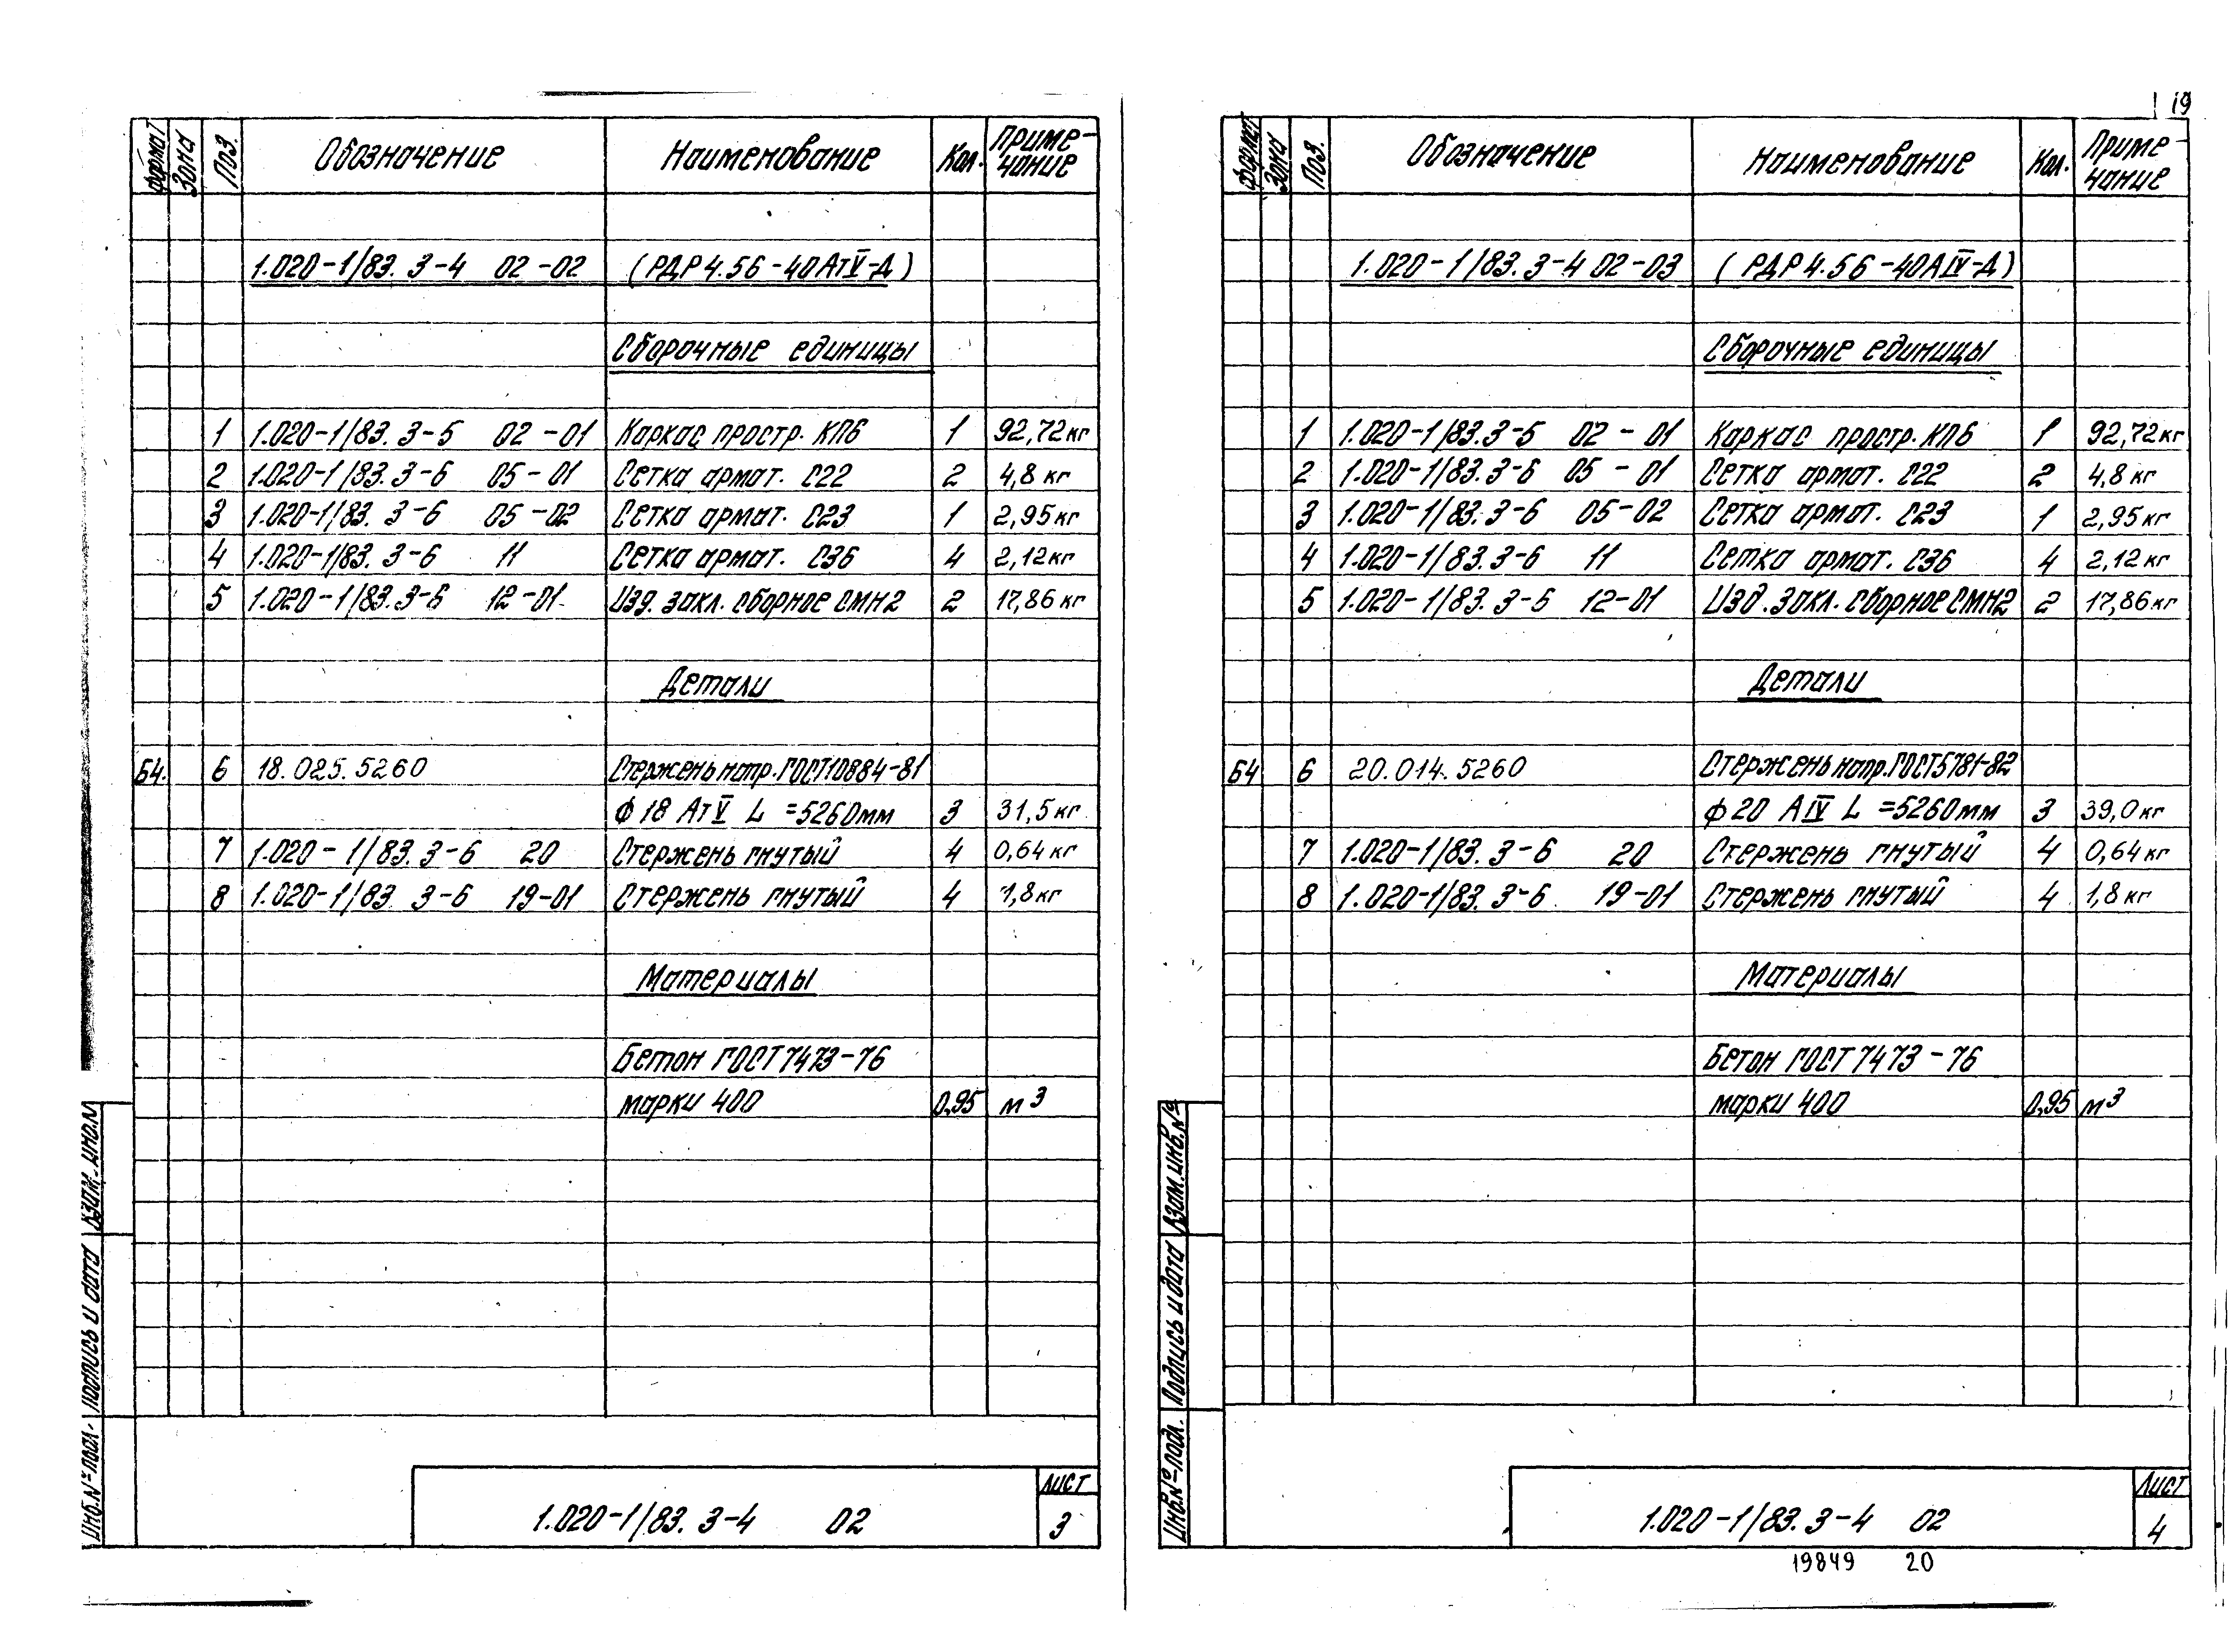 19
формат Зона Поз. Обозначение Наименование Кол. Приме-
чание
1.020-1/83. 3-4 02-02 (РДР4.56-40АтV-Д)
Сборочные единицы
1 1.020-1/83. 3-5 02-01 Каркас простр. КП6 1 92,72кг
2 1.020-1/83. 3-6 05-01 Сетка армат. С22 2 4,8 кг
3 1.020-1/83. 3-6 05-02 Сетка армат. С23 1 2,95кг
4 1.020-1/83. 3-6 11 Сетка армат. С36 4 2,12кг
5 1.020-1/83. 3-6 12-01 Изд. закл. сборное СМН2 2 17,86 кг
Детали
Б4. 6 18.025.5260 Стержень напр. ГОСТ10884-81
ф 18 АтV L =5260мм 3 31,5 кг
7 1.020-1/83. 3-6 20 Стержень гнутый 4 0,64 кг
8 1.020-1/83 3-6 19-01 Стержень гнутый 4 1,8 кг
Материалы
Бетон ГОСТ 7473-76
марки 400 0,95 м3
Инв.№подл. Подпись и дата Взам. инв.№
1.020-1/83. 3-4 02
Лист
3
формат Зона Поз. Обозначение Наименование Кол. Приме-
чание
1.020-1/83. 3-4 02-03 (РДР4.56-40АIV-Д)
Сборочные единицы
1 1.020-1/83. 3-5 02-01 Каркас простр. КП6 1 92,72кг
2 1.020-1/83. 3-6 05-01 Сетка армат. С22 2 4,8 кг
3 1.020-1/83. 3-6 05-02 Сетка армат. С23 1 2,95 кг
4 1.020-1/83. 3-6 11 Сетка армат. С36 4 2,12 кг
5 1.020-1/83. 3-6 12-01 Изд. закл. сборное СМН2 2 17,86кг
Детали
Б4 6 20.014.5260 Стержень напр. ГОСТ5781-82
ф 20 АIV L =5260мм 3 39,0 кг
7 1.020-1/83. 3-6 20 Стержень гнутый 4 0,64 кг
8 1.020-1/83. 3-6 19-01 Стержень гнутый 4 1,8 кг
Материалы
Бетон ГОСТ 7473-76
марки 400 0,95 м3
Инв.№подл. Подпись и дата Взам. инв.№
1.020-1/83. 3-4 02
Лист
4
19849 20